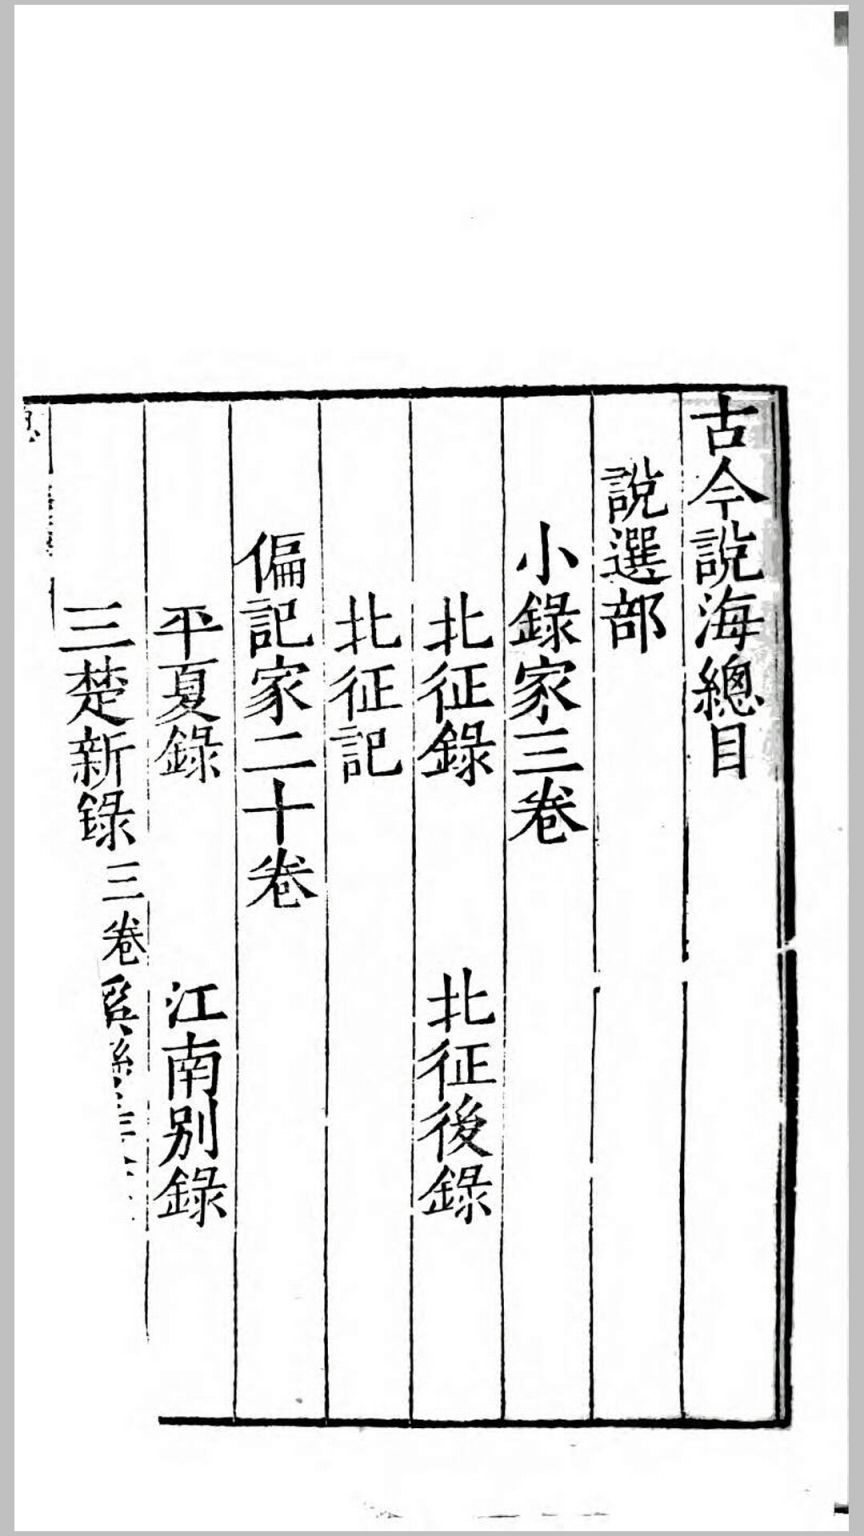 古今說海總目
說選部
小錄家三卷
北征錄 北征後錄
北征記
偏記家二十卷
平夏錄 江南别錄
三楚新錄三卷